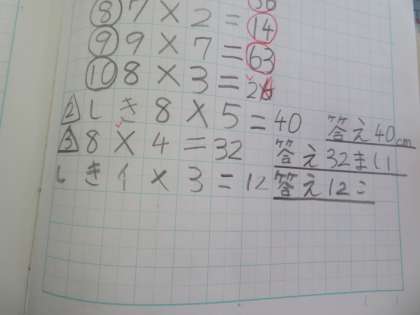 ⑧ 7 × 2 = 14
⑨ 9 × 7 = 63
⑩ 8 × 3 = 24
2 しき 8 × 5 = 40 答え 40cm
3 8 × 4 = 32 答え 32まい
しき 4 × 3 = 12 答え 12こ